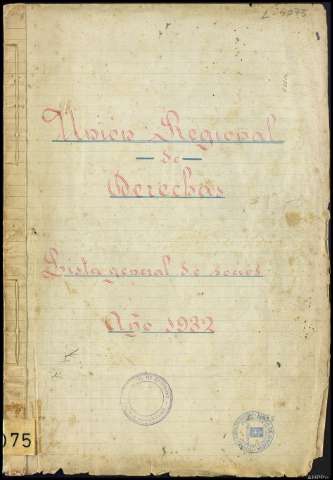 L-5075
Unión Regional
de
Derechas
Lista general de socios
Año 1932
075